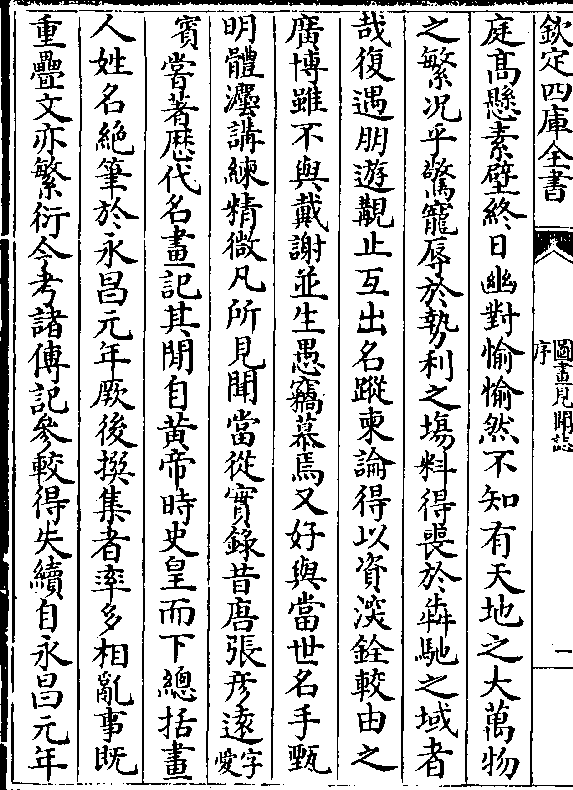 欽定四庫全書
圖畫見聞誌
序
一
庭髙懸素壁終日幽對愉愉然不知有天地之大萬物
之繁况乎驚寵辱於勢利之塲料得喪於犇馳之域者
哉復遇朋遊觀止互出名蹤柬論得以資深銓較由之
廣博雖不與戴謝並生愚竊慕焉又好與當世名手甄
明體灋講練精微凡所見聞當從實錄昔唐張彦遠字愛
賓嘗著歴代名畫記其間自黄帝時史皇而下總括畫
人姓名絶筆於永昌元年厥後撰集者率多相亂事既
重疊文亦繁衍今考諸傳記參較得失續自永昌元年